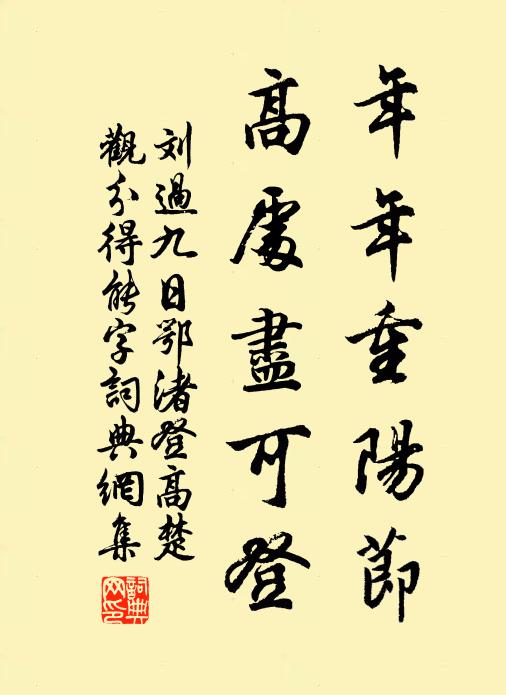 年年重陽節
高處盡可登
刘過九日鄂渚登高楚
觀分得能字詞典網集
詞典網印